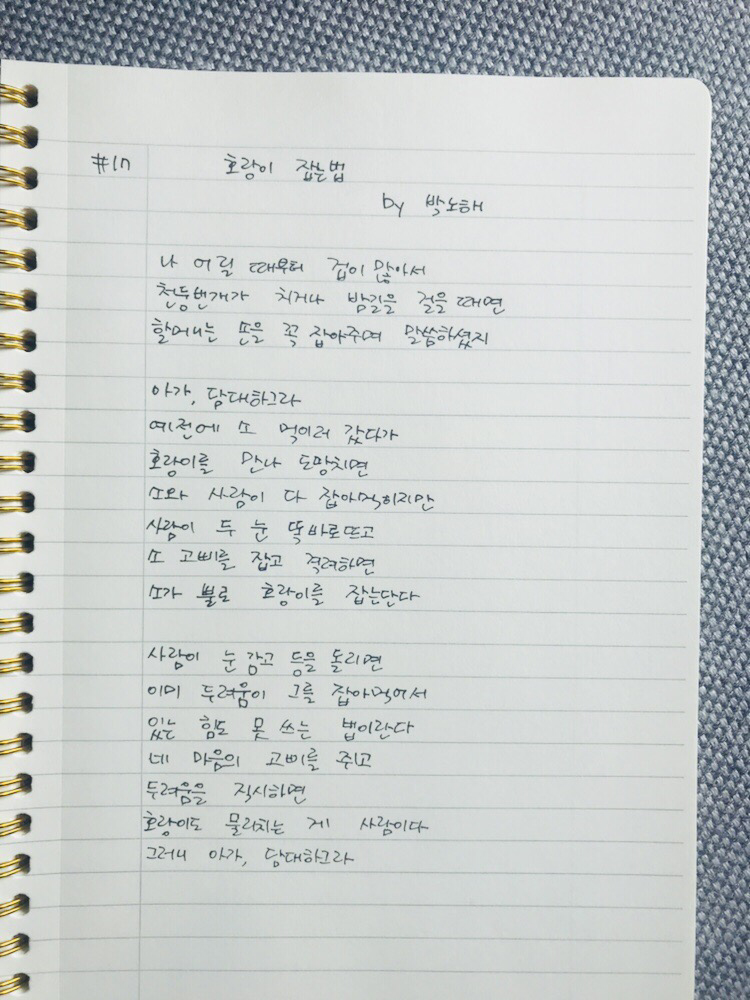 #17 호랑이 잡는법
by 박노해
나 어릴 때부터 겁이 많아서
천둥번개가 치거나 밤길을 걸을 때면
할머니는 손을 꼭 잡아주며 말씀하셨지
아가, 담대하그라
예전에 소 먹이러 갔다가
호랑이를 만나 도망치면
소와 사람이 다 잡아먹히지만
사람이 두 눈 똑바로뜨고
소 고삐를 잡고 격려하면
소가 뿔로 호랑이를 잡는단다
사람이 눈 감고 등을 돌리면
이미 두려움이 그를 잡아먹어서
있는 힘도 못 쓰는 법이란다
네 마음의 고삐를 주고
두려움을 직시하면
호랑이도 물러치는 게 사람이다
그러니 아가, 담대하그라